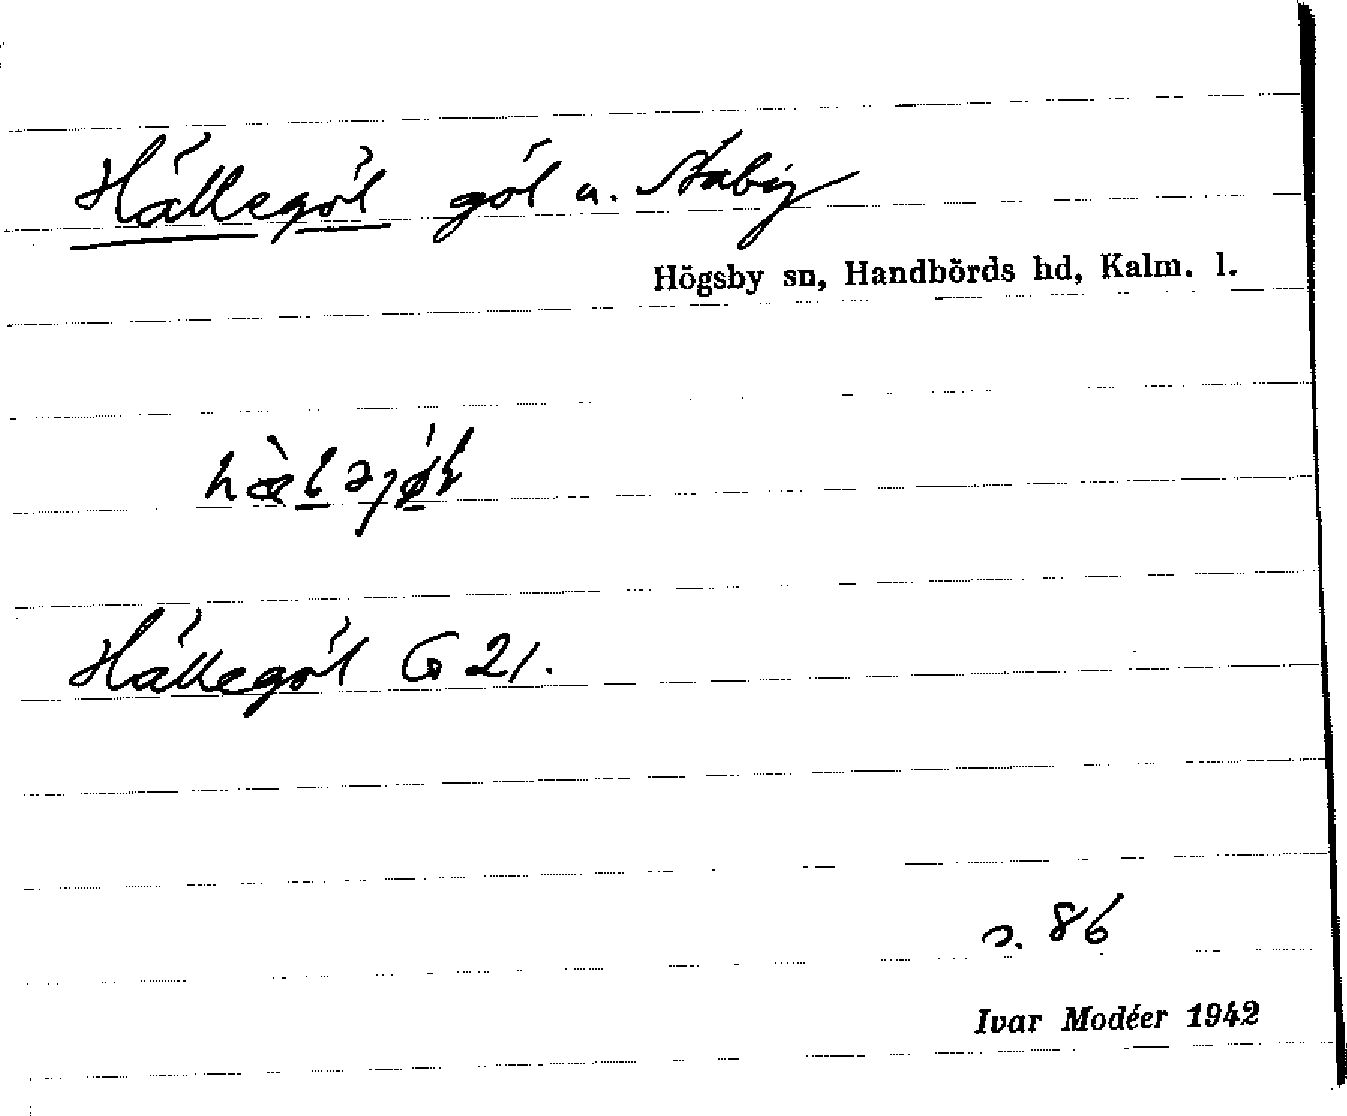 Hällegöl göl u. Staby
Högsby sn, Handbörds hd, Kalm. l.
Hällegöl G 21.
s. 86
Ivar Modéer 1942